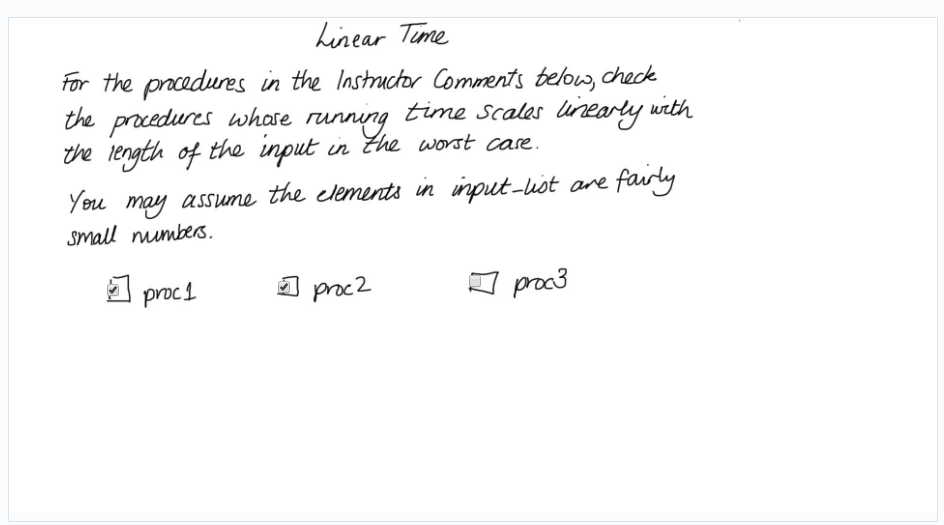 Linear Time
For the procedures in the Instructor Comments below, check
the procedures whose running time scales linearly with
the length of the input in the worst case.
You may assume the elements in input_list are fairly
small numbers.
proc1 proc2 proc3